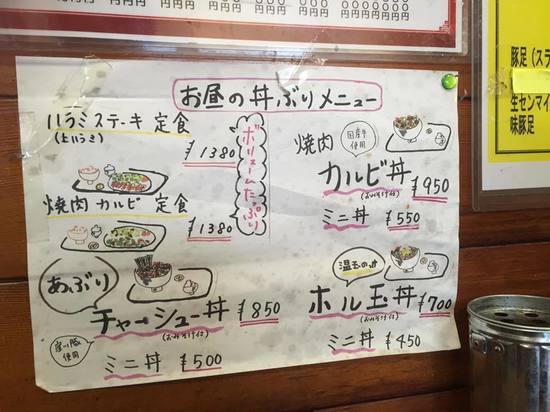 お昼の丼ぶりメニュー
ハラミステーキ 定食
(上ハラミ)
¥1380
焼肉 カルビ 定食
¥1380
ボリュームたっぷり
あぶり
チャーシュー丼 ¥850
(おみそ汁付)
ミニ丼 ¥500
焼肉
国産牛使用
カルビ丼 ¥950
(おみそ汁付)
ミニ丼 ¥550
温玉のせ
ホル玉丼 ¥700
(おみそ汁付)
ミニ丼 ¥450
豚足(スラ
生センマイ
味豚足